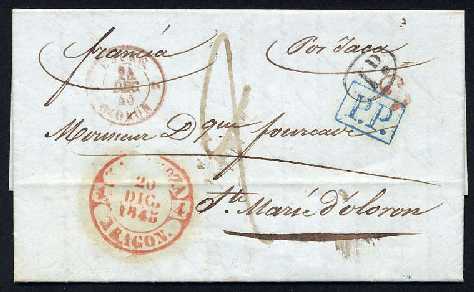 francia Por Jaca
24
DEC
45
OLORON
D
P.P.
Monsieur Dque fourcade
20
DIC.
1845
ARAGON.
Ste Marie d'oloron